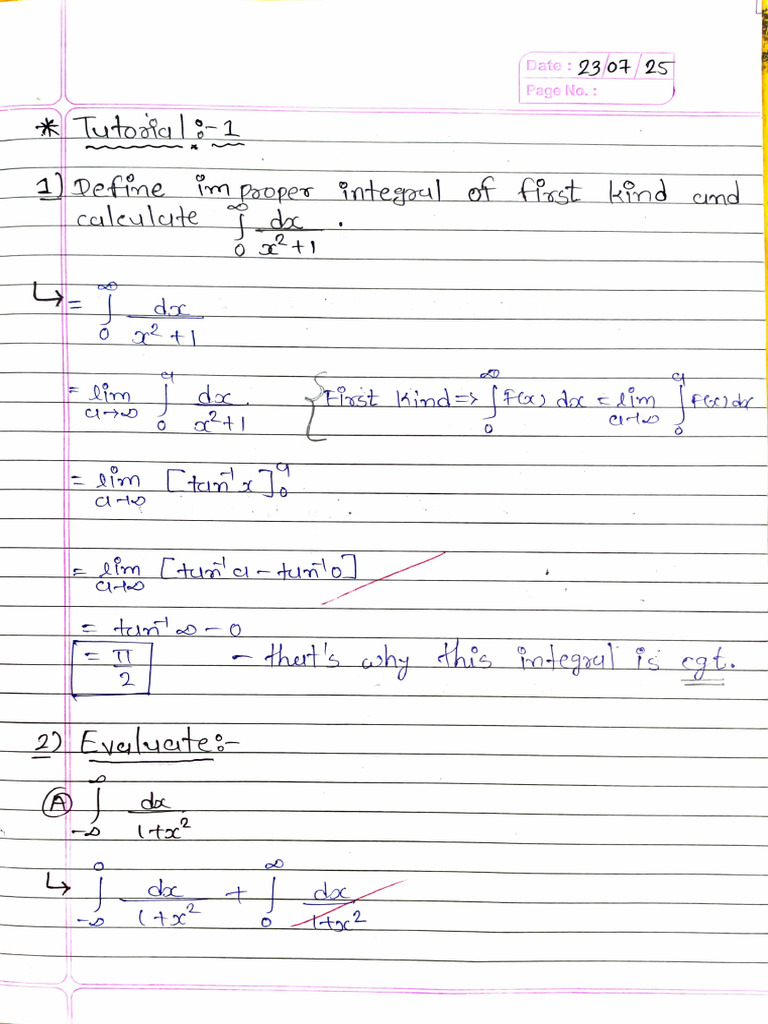 Date : 23/07/25
Page No. :
* Tutorial :- 1
1) Define improper integral of first kind and
calculate ∫₀^∞ dx/(x²+1) .
↳ = ∫₀^∞ dx/(x²+1)
= lim a→∞ ∫₀^a dx/(x²+1) { First kind => ∫₀^∞ f(x) dx = lim a→∞ ∫₀^a f(x) dx
= lim a→∞ [tan⁻¹x]₀^a
= lim a→∞ [tan⁻¹a - tan⁻¹0]
= tan⁻¹∞ - 0
= π/2 - that's why this integral is cgt.
2) Evaluate:-
Ⓐ ∫₋∞^∞ dx/(1+x²)
↳ ∫₋∞^0 dx/(1+x²) + ∫₀^∞ dx/(1+x²)